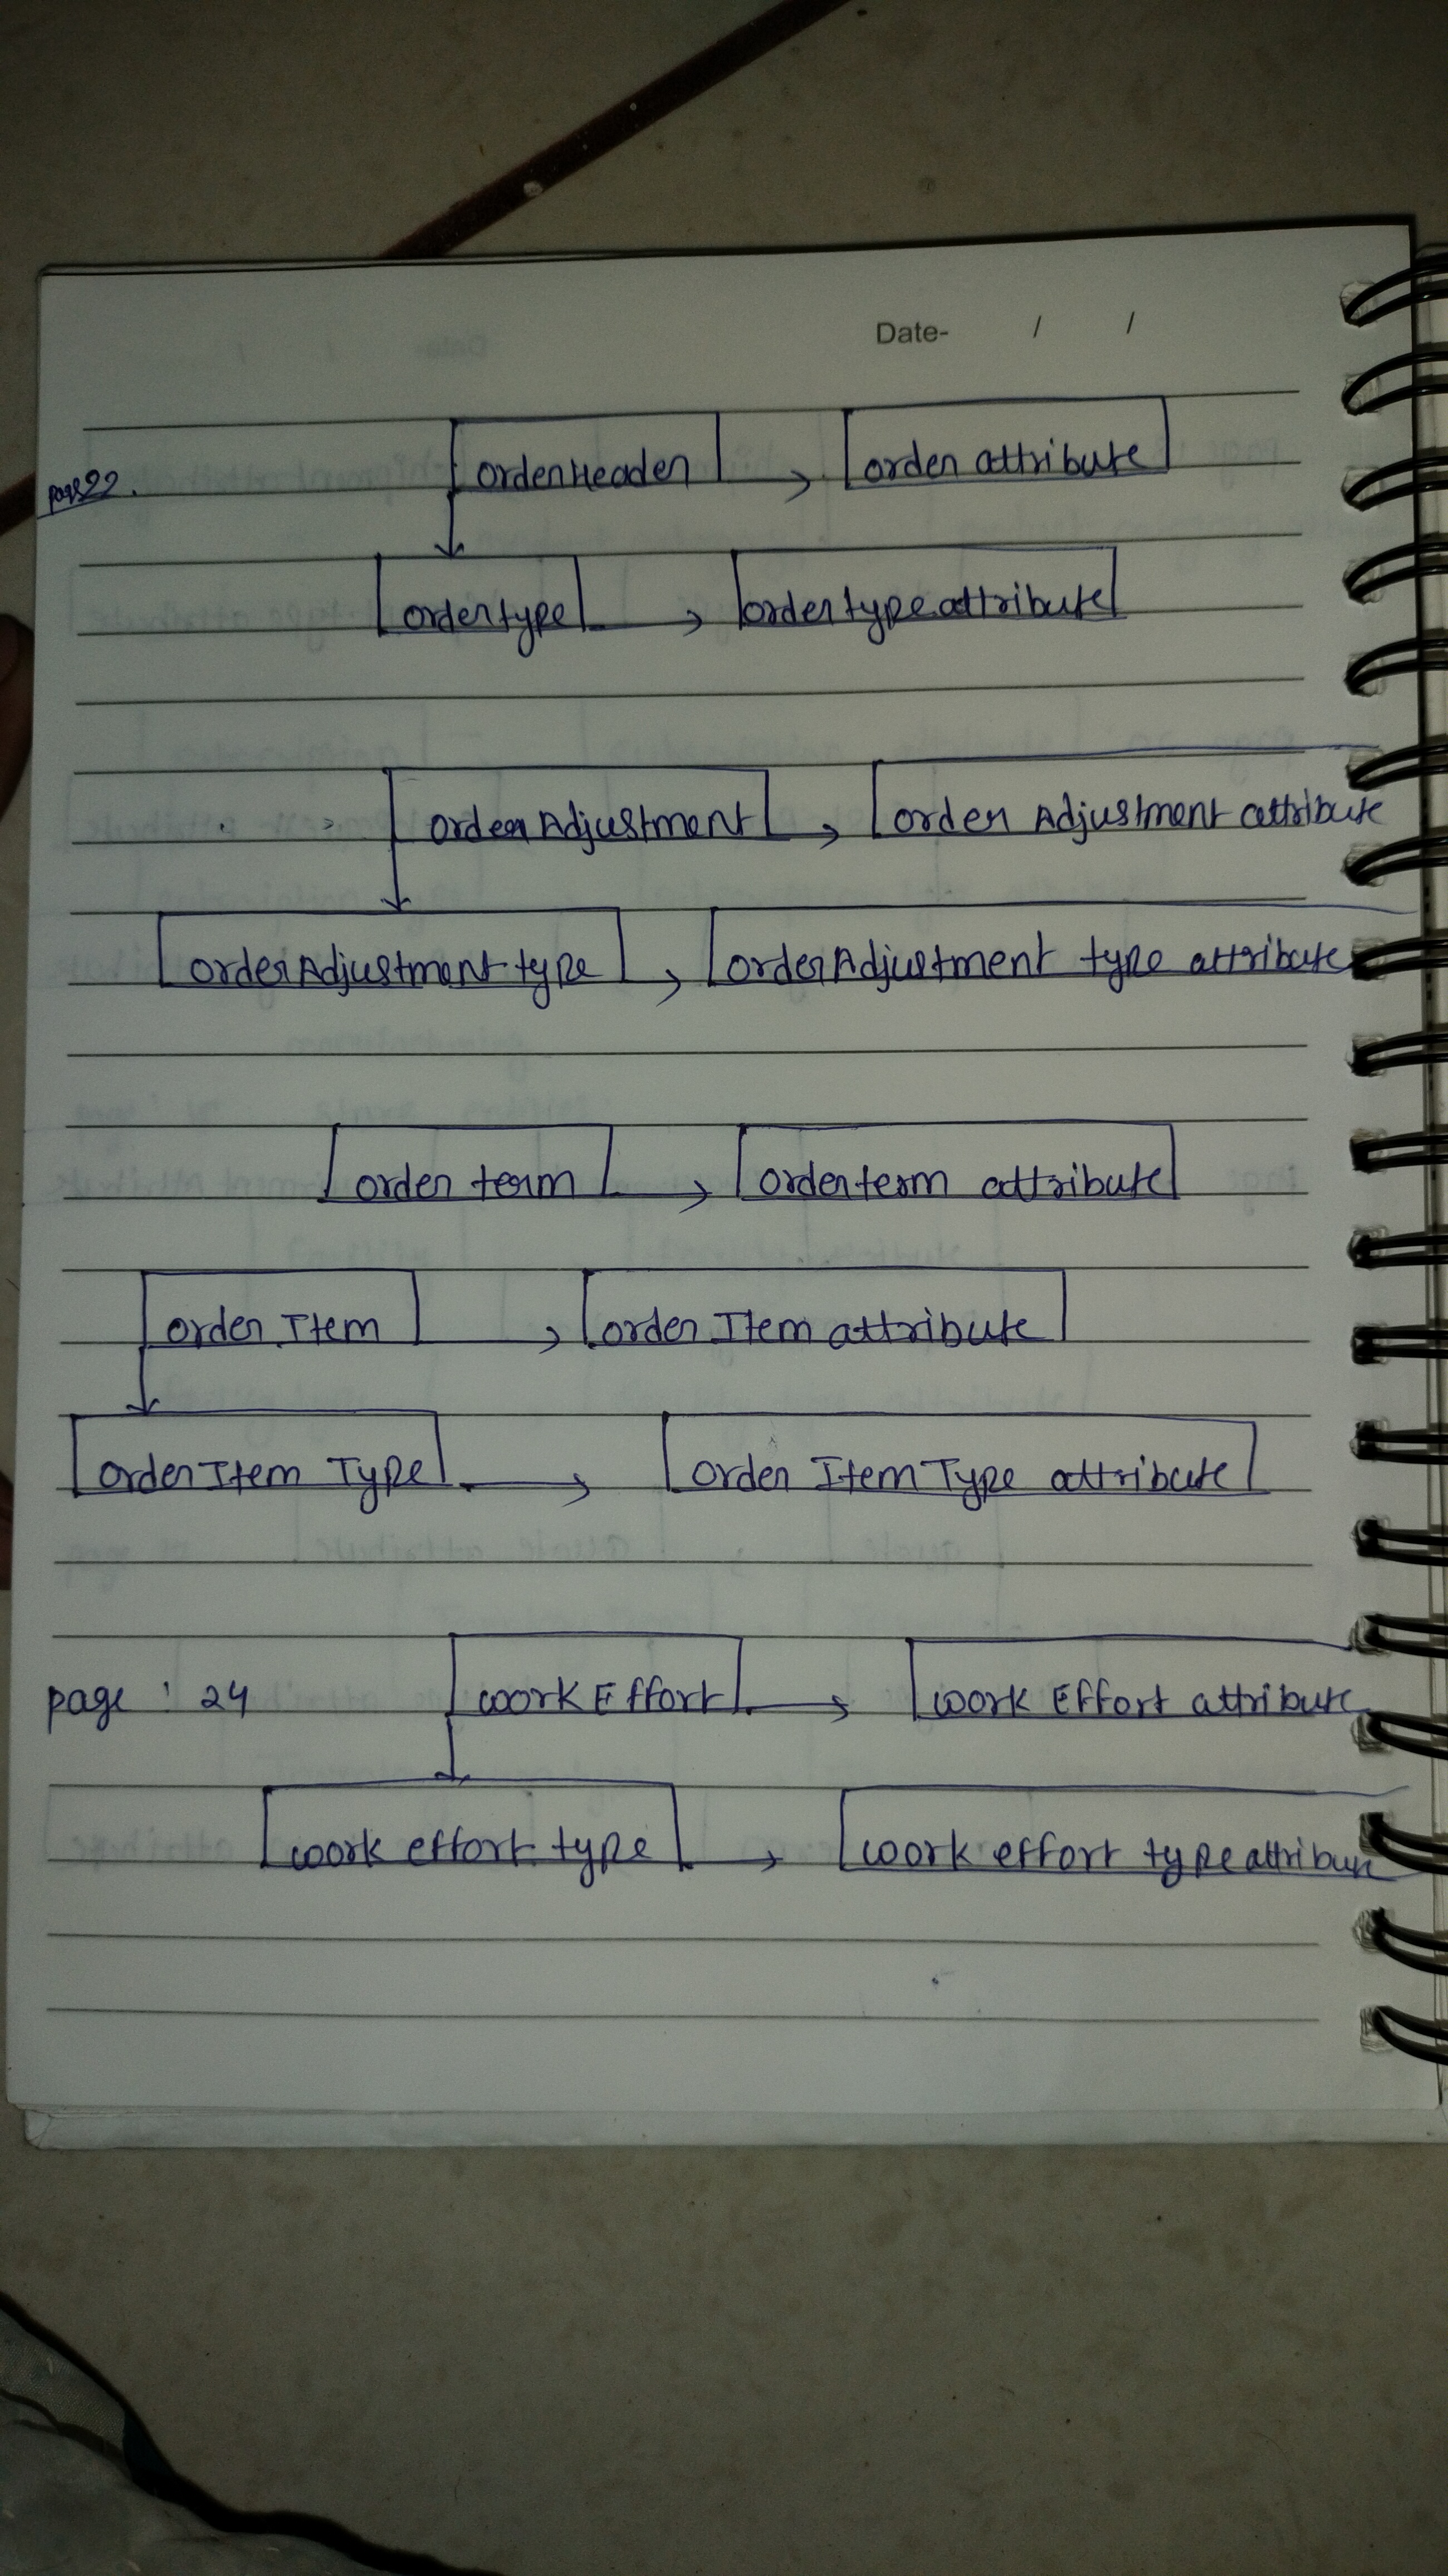 Date- / /
page 22. orderHeader order attribute
ordertype ordertype attribute
order Adjustment order Adjustment attribute
orderAdjustment type orderAdjustment type attribute
order term orderterm attribute
order Item order Item attribute
orderItem Type order Item Type attribute
page : 24 work Effort work Effort attribute
work effort type work effort type attribute